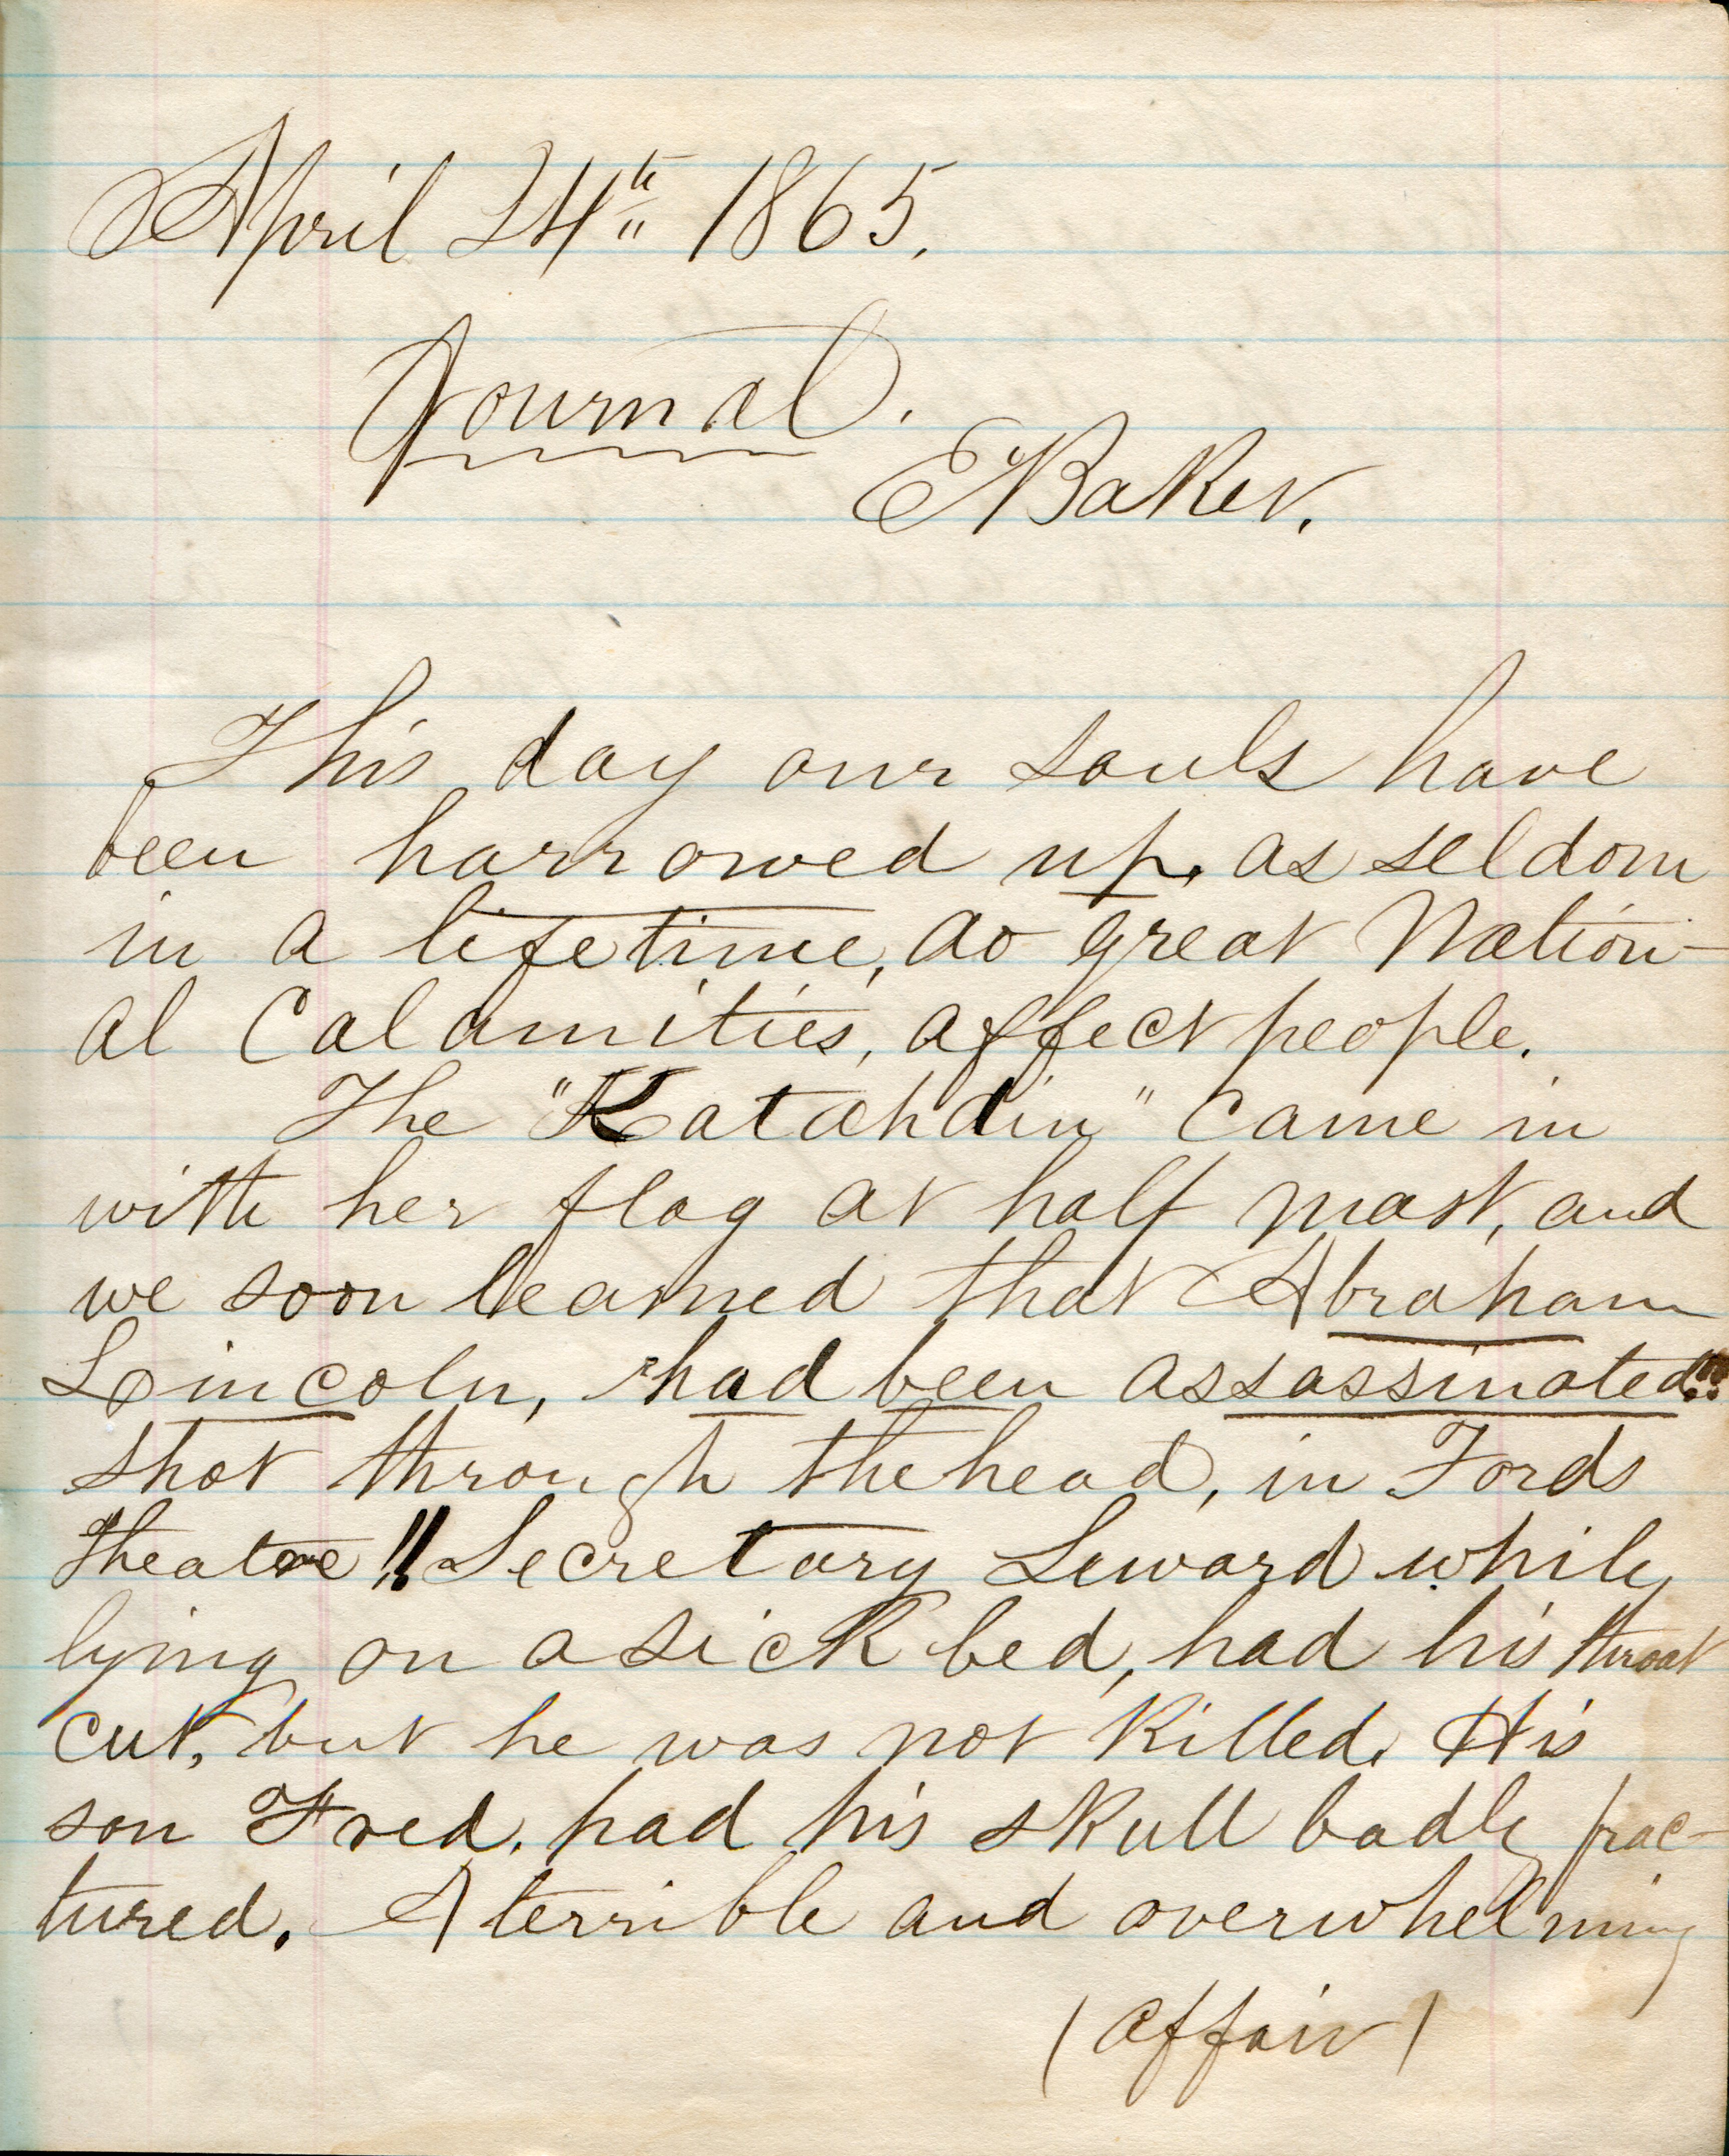 April 24th 1865.
Journal.
E Baker.
This day our souls have
been harrowed up, as seldom
in a lifetime, do great Nation-
al Calamities, affect people.
The "Katahdin" came in
with her flag at half mast, and
we soon learned that Abraham
Lincoln, had been assassinated!!!
shot through the head, in Fords
Theatre!! Secretary Seward while
lying on a sick bed, had his throat
cut, but he was not killed. His
son Fred. had his skull badly frac-
tured. A terrible and overwhelming
(affair)